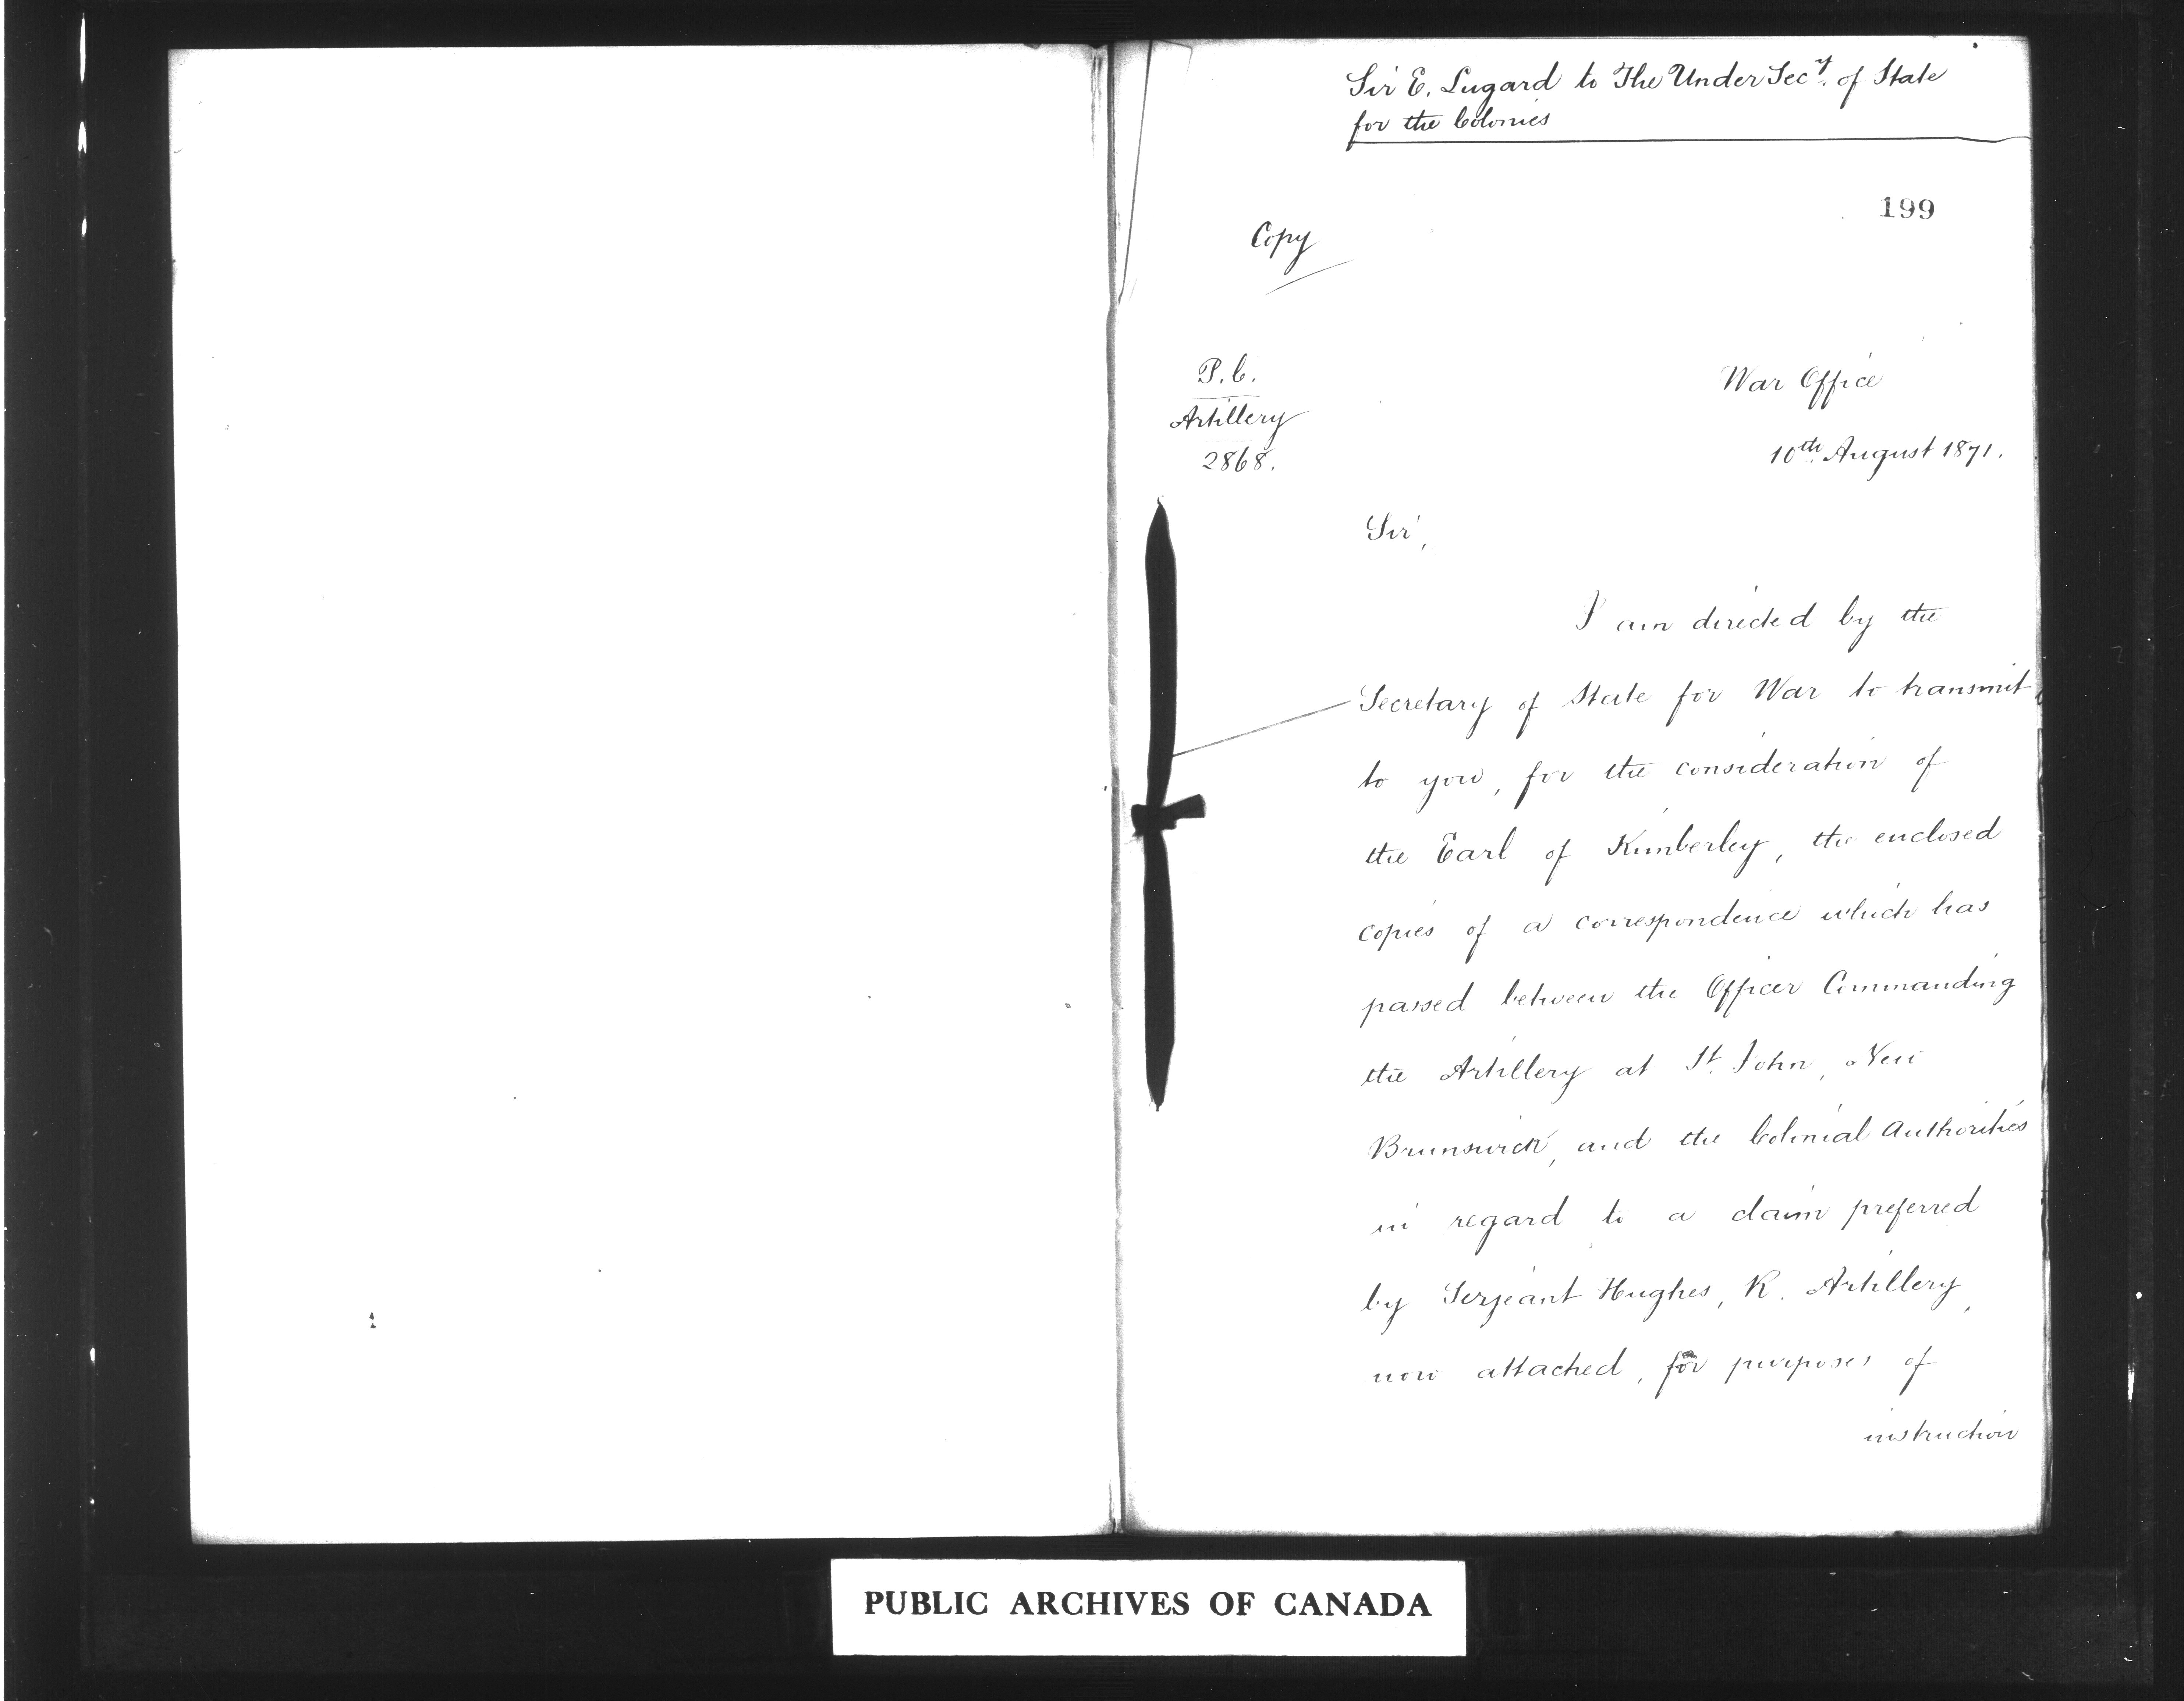 Sir E. Lugard to The Under Secy. of State
for the Colonies
199
Copy
P.C.
Artillery
2868.
War Office
10th August 1871.
Sir,
I am directed by the
Secretary of State for War to transmit
to you, for the consideration of
the Earl of Kimberley, the enclosed
copies of a correspondence which has
passed between the Officer Commanding
the Artillery at St. John, New
Brunswick, and the Colonial Authorities
in regard to a claim preferred
by Serjeant Hughes, R. Artillery,
now attached, for purposes of
instruction
PUBLIC ARCHIVES OF CANADA